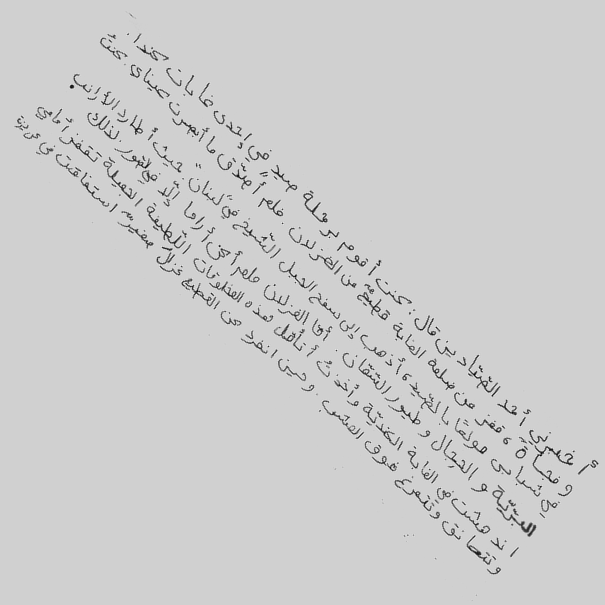 أخبرني أحد الصّيادين قال: كنت أقوم برحلة صيدٍ في إحدى غابات كندا.
وفجأةً، قفز من ضلعة الغابة قطيعٌ من الغزلان. فلم أصدّق ما أبصرت عيناي. كنتُ
في شبابي مولعًا بالصّيد، أذهب إلى سفح الجبل الشّيخ في لبنان. حيث أطارد الأرانب
البرّيّة والحجال وطيور السّمّان. أمّا الغزلان فلم أكن أراها إلّا في الصّور. لذلك
اندهشت في الغابة الكنديّة وأخذتُ أتأمّل هذه المخلوقات اللّطيفة الجميلة تقفز أمامي
وتتعانق وتتمرّغ فوق العشب. وحين انفرد عن القطيع غزلًا صغيرٌ استفاقت في غريزة